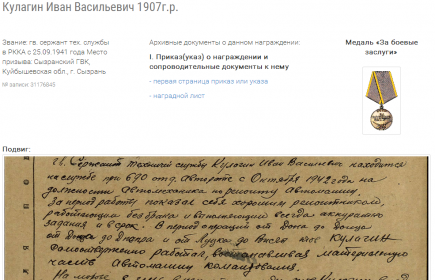 Кулагин Иван Васильевич 1907г.р.
Звание: гв. сержант тех. службы
в РККА с 25.09.1941 года Место
призыва: Сызранский ГВК,
Куйбышевская обл., г. Сызрань
№ записи: 31176845
Архивные документы о данном награждении:
I. Приказ(указ) о награждении и
сопроводительные документы к нему
- первая страница приказ или указа
- наградной лист
Медаль «За боевые
заслуги»
Подвиг:
Сержант технической службы Кулагин Иван Васильевич находится
на службе при 690 отд. Автороте с Октября 1942 года на
должности Автомеханика по ремонту автомашин.
За период работы показал себя хорошим ремонтником,
работающим без брака и выполняющий всегда аккуратно
задания и в срок. В период операций от Дона до Донца
от Донца до Днепра и от Луцка до Вислы тов. Кулагин
самоотверженно работал, восстанавливая материальную
часть Автомашин